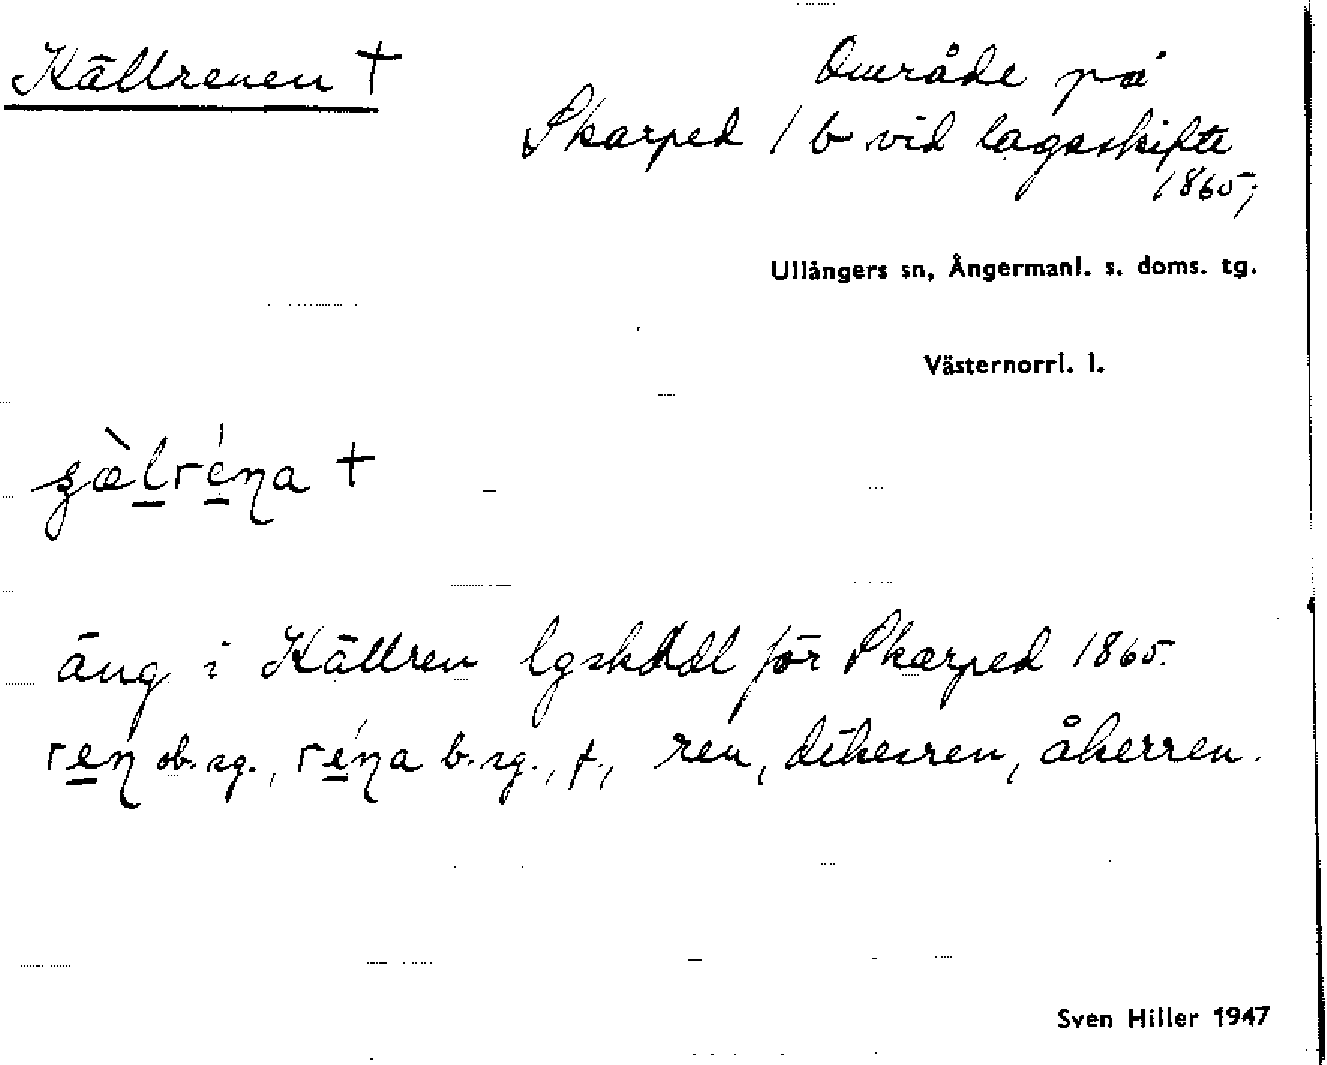 Källrenen †
Område på
Skarped 1 b vid lagaskifte
1865;
Ullångers sn, Ångermanl. s. doms. tg.
Västernorrl. l.
†
äng i Källren lgskhdl för Skarped 1865.
ob. sg., b. sg., f., ren, dikesren, åkerren.
Sven Hiller 1947